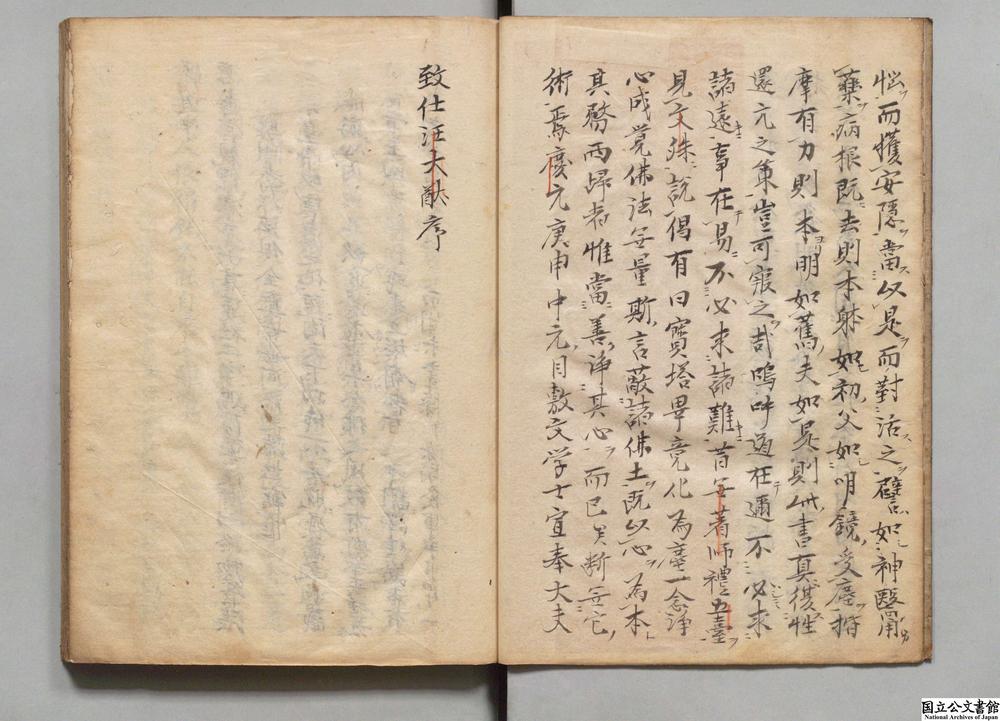 惱而獲安隱當以是而對治之譬如神醫用
藥病根既去則本躰如初父如明鏡受塵揩
摩有力則本明如舊夫如是則此書真復性
還元之筆豈可寂之哉嗚呼道在邇不必求
諸遠事在易不必求諸難昔無著師禮五臺
見文殊說偈有曰寶塔畢竟化為塵一念淨
心成覺佛法無量斯言蔽諸佛土既以心為本
其發而歸者惟當善淨其心而已矣斷無它
術焉慶元庚申中元日敷文学士宣奉大夫
致仕汪大猷序
国立公文書館
National Archives of Japan